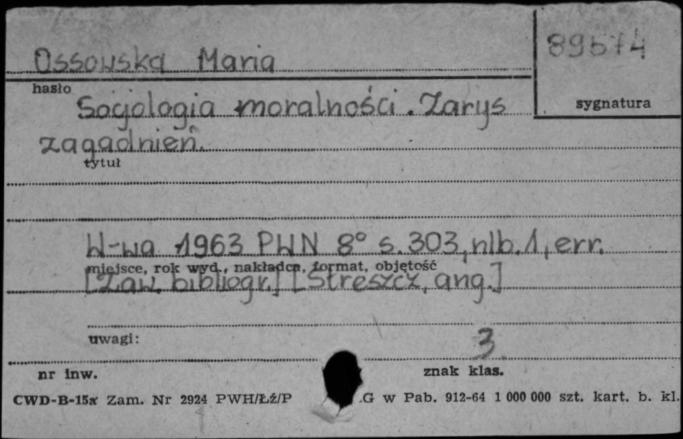 Ossowska Maria
89574
hasło
sygnatura
Socjologia moralności. Zarys
zagadnień.
tytuł
W-wa 1963 PWN 8° s. 303, nlb. 1, err.
miejsce, rok wyd., nakładca, format, objętość
[Zaw. bibliogr.] [Streszcz. ang.]
uwagi:
3.
nr inw.
znak klas.
CWD-B-15a Zam. Nr 2924 PWH/Łź/P .G w Pab. 912-64 1 000 000 szt. kart. b. kl.